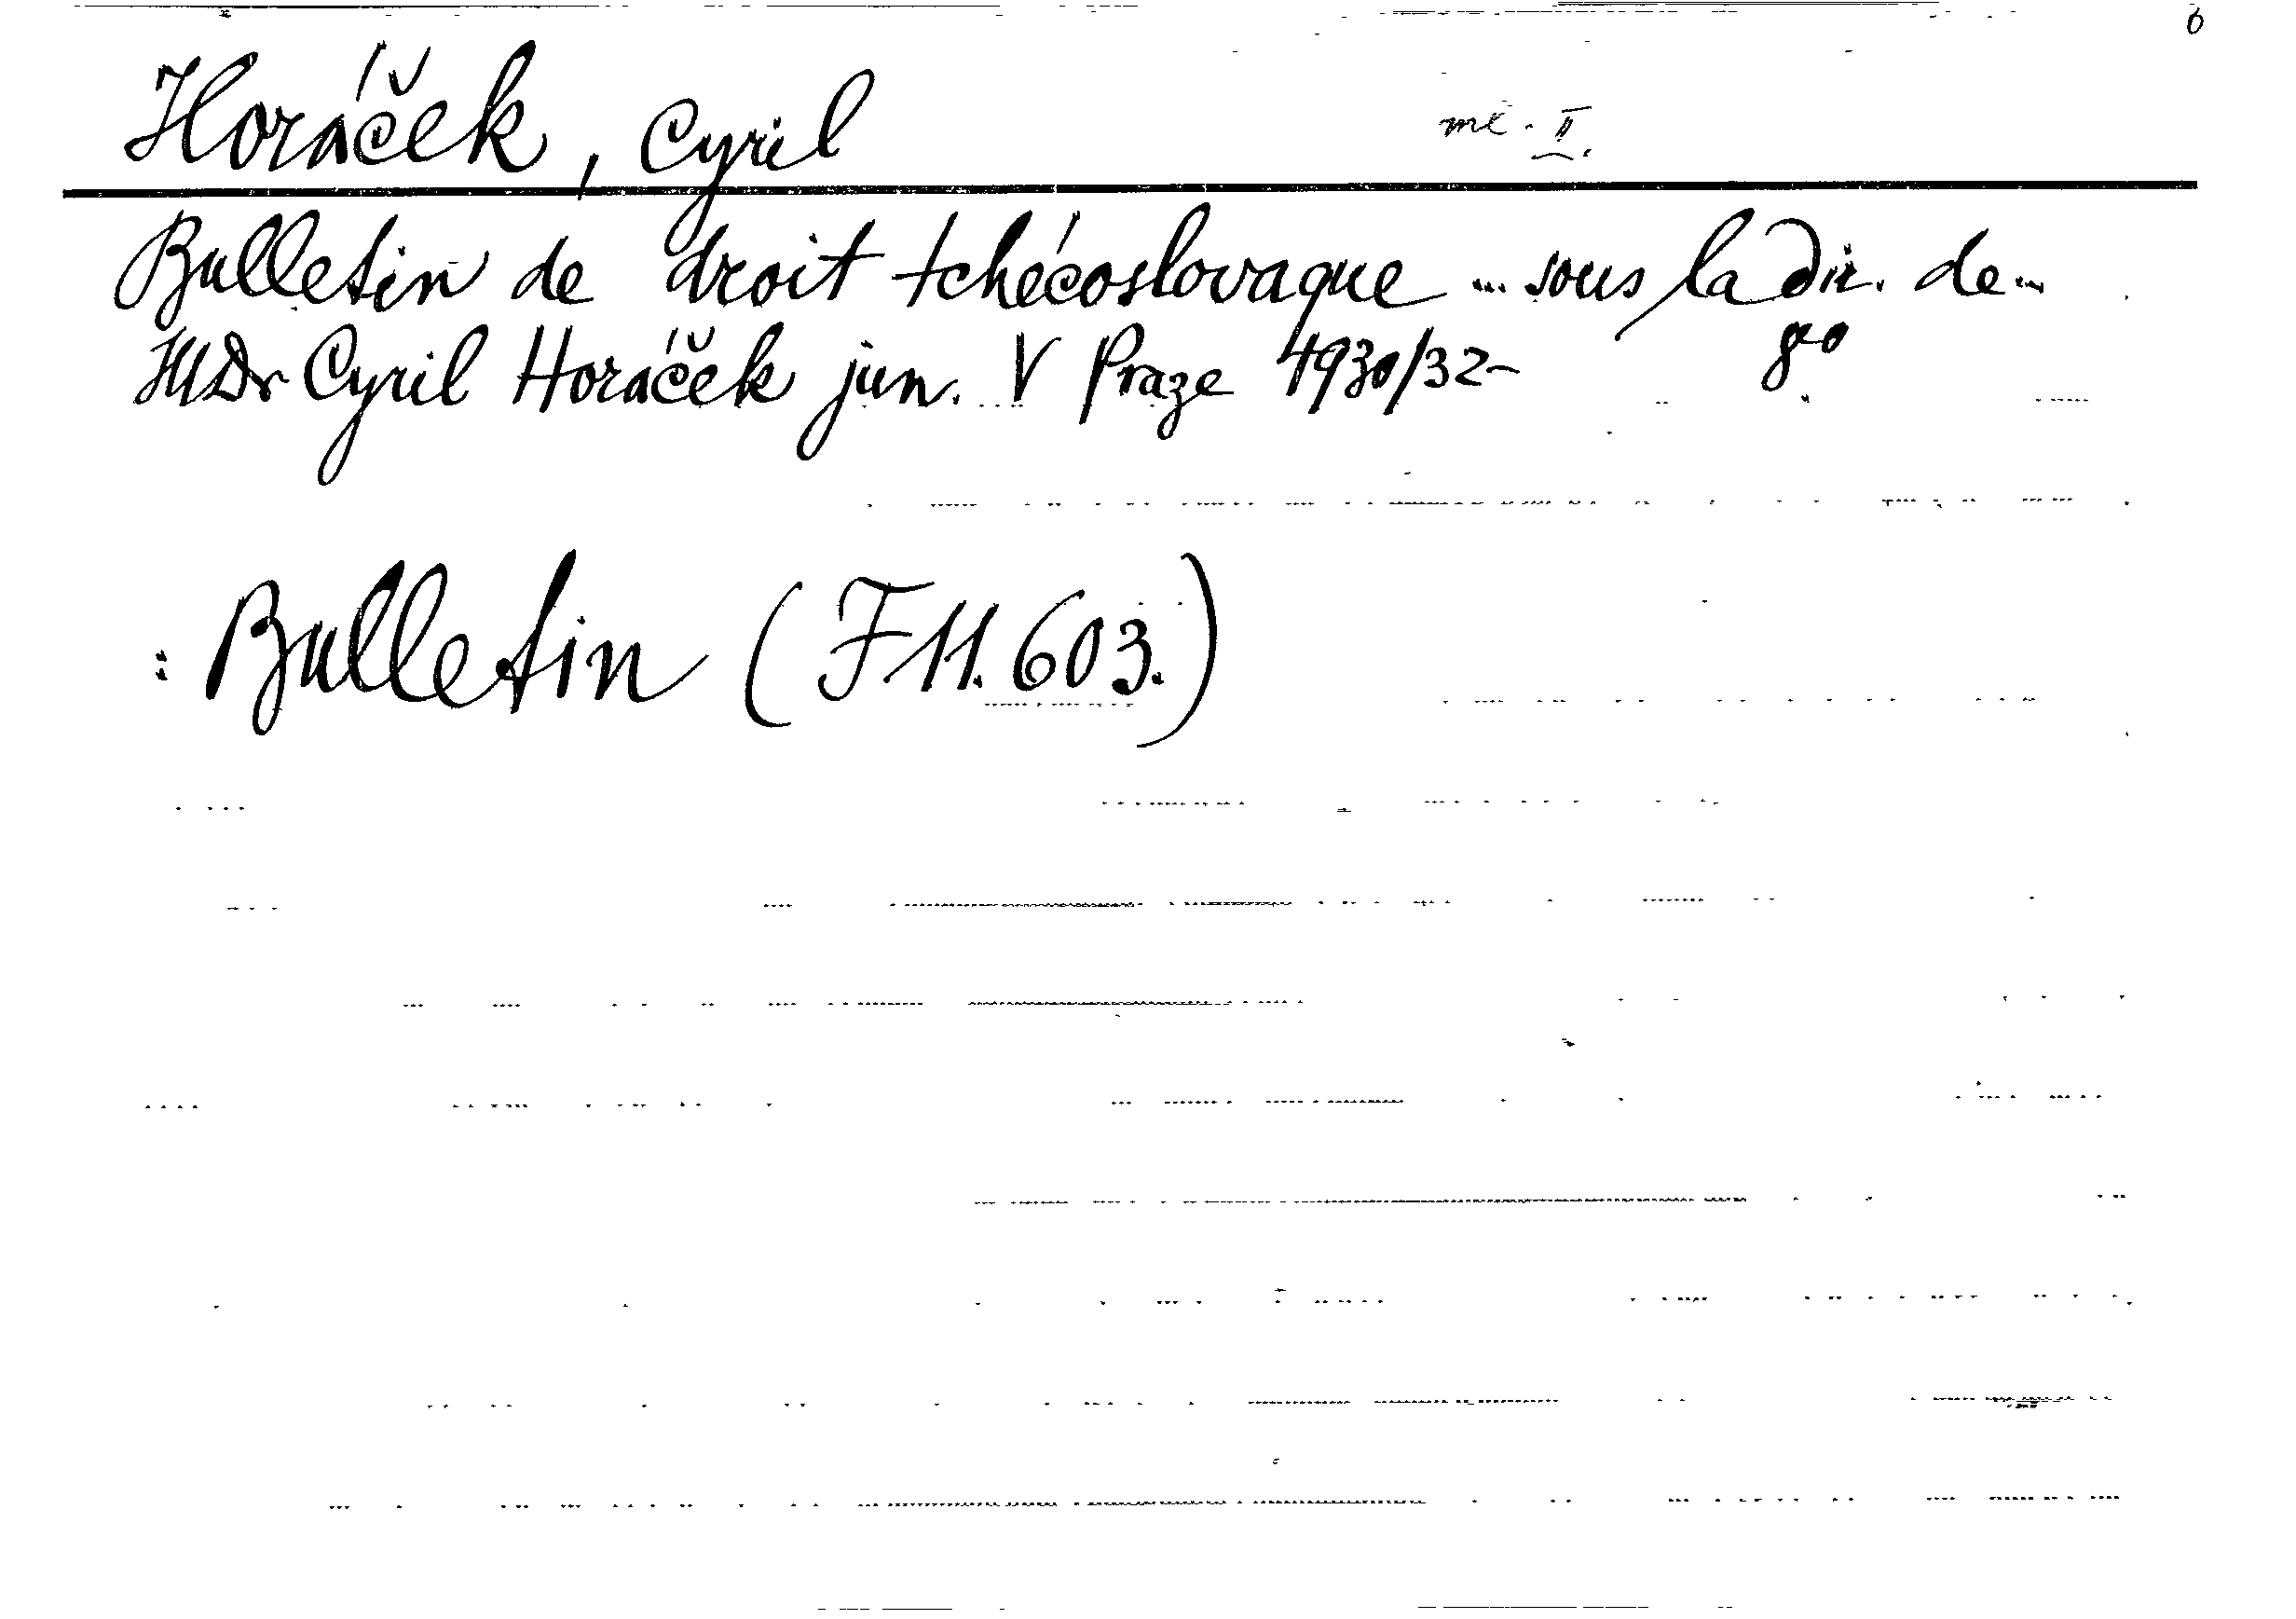 6
Horáček, Cyril
ml. II.
Bulletin de droit tchécoslovaque ... sous la dir. de...
JUDr Cyril Horáček jun. V Praze 1930/32- 8°
: Bulletin (F 11.603.)